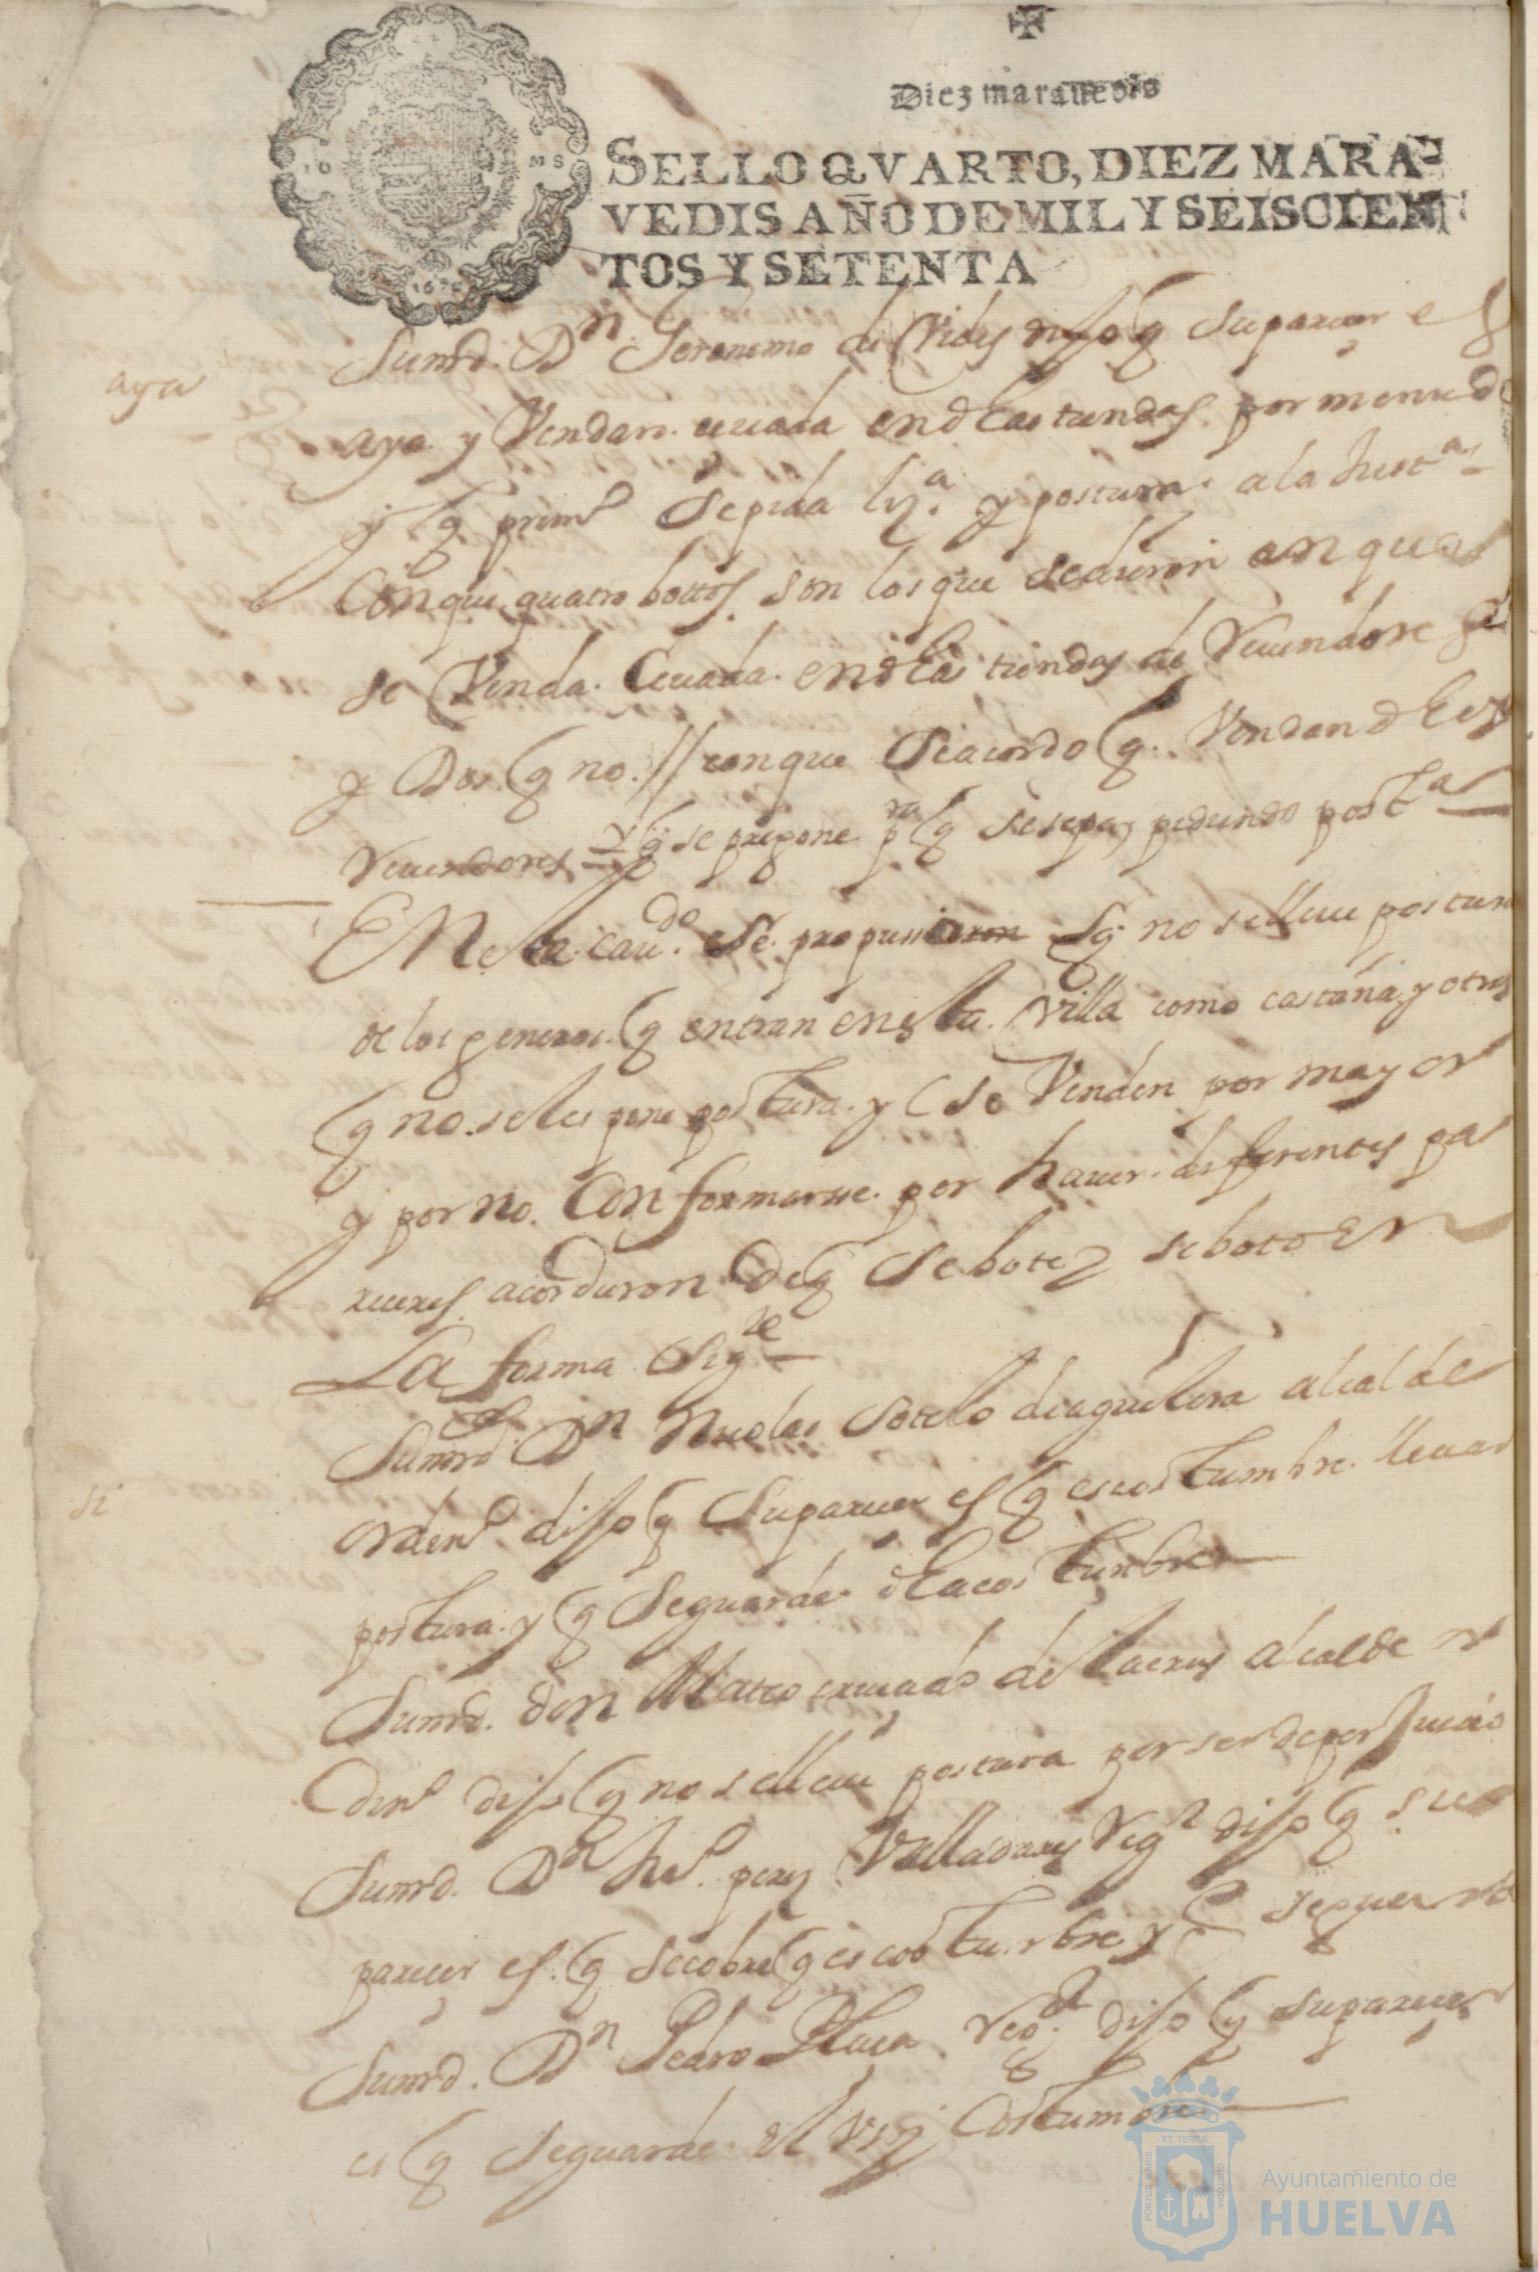 Diez maravedis
SELLO QVARTO, DIEZ MARA-
VEDIS AÑO DE MIL Y SEISCIEN
TOS Y SETENTA
16 MS
1670
Sumrd. Dn Geronimo de Vides dijo q su parecer es
aya
aya y Vendan cevada en las tiendas por menudo
y q prim.o se pida liz.a y postura a la Just.a
Con que quatro bottos son los que dicieron en que
se Venda Cevada en las tiendas de Vecindores
y Dos q no // con que se acordo q Vendan
y q se pregone pra q se sepa, pidiendo post.a
En este cavdo. se propusieron q no se lleve postura
de los generos q entran en esta Villa como castaña y otros
q no se les pone postura y se Venden por mayor
y por no Conformarse por haver diferentes pa
receres acordaron De q se bote y se boto En
La forma sigte
Sumrd. Dn Nicolas Sotelo de aguilera alcalde
si
ordin.o dijo q su parecer es q es costumbre llevar
postura y q se guarde la costumbre
Sumrd. don Mateo de alcalde or
Din.o dijo q no se lleve postura por ser de perjuicio
Sumrd. Dn perez Valladares Reg.r dijo q su
parecer es q se cobre q es costumbre y
Sumrd. Dn Pedro Reg.r dijo q su parecer
es q se guarde el Uso y Costumbre
ET TERRÆ
PORTUS MARIS
CUSTODIA
Ayuntamiento de
HUELVA